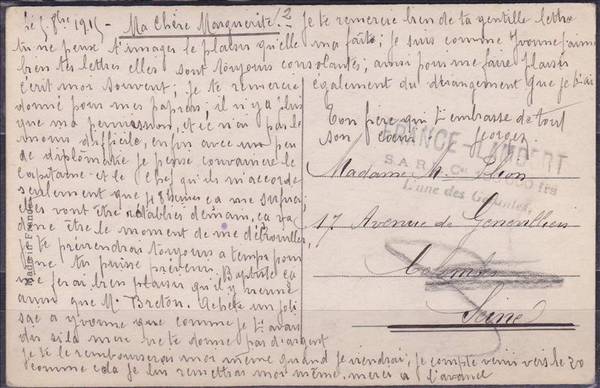 le 5 8bre 1915 - Ma Chère Marguerite. Je te remercie bien de ta gentille lettre
tu ne peux t'imager le plaisir qu'elle m'a faite; je suis comme Yvonne j'aime
bien tes lettres elles sont toujours consolantes; aussi pour me faire plaisir
écrit moi souvent; je te remercie également du dérangement que je t'ai
donné pour mes papiers; il n'y a plus
que ma permission, et ce n'ai pas le
moins difficile, enfin avec un peu
de diplomatie je pense convaincre le
capitaine et le chef qu'ils m'accorde
seulement que
elles vont être rétablies demain, ça va
donc être le moment de me
je te préviendrai toujours a temps pour
que tu puisse prévenir Baptiste ça
me ferai bien plaisir qu'il y vienne
ainsi que Mr Breton. Achète un joli
sac a Yvonne que comme je t'avais
dis si la mère ne te donne pas d'argent
je te le rembourserai moi même quand je viendrai, je compte venir vers le 20
comme cela je lui remettrai moi même. merci a l'avance
Ton frère qui t'embrasse de tout
son cœur Georges
FRANCE-LAMBERT
S.A.R.L. Cap
L'une des Gérantes,
Madame M.
17 Avenue de Genevilliers
Colombes
Seine